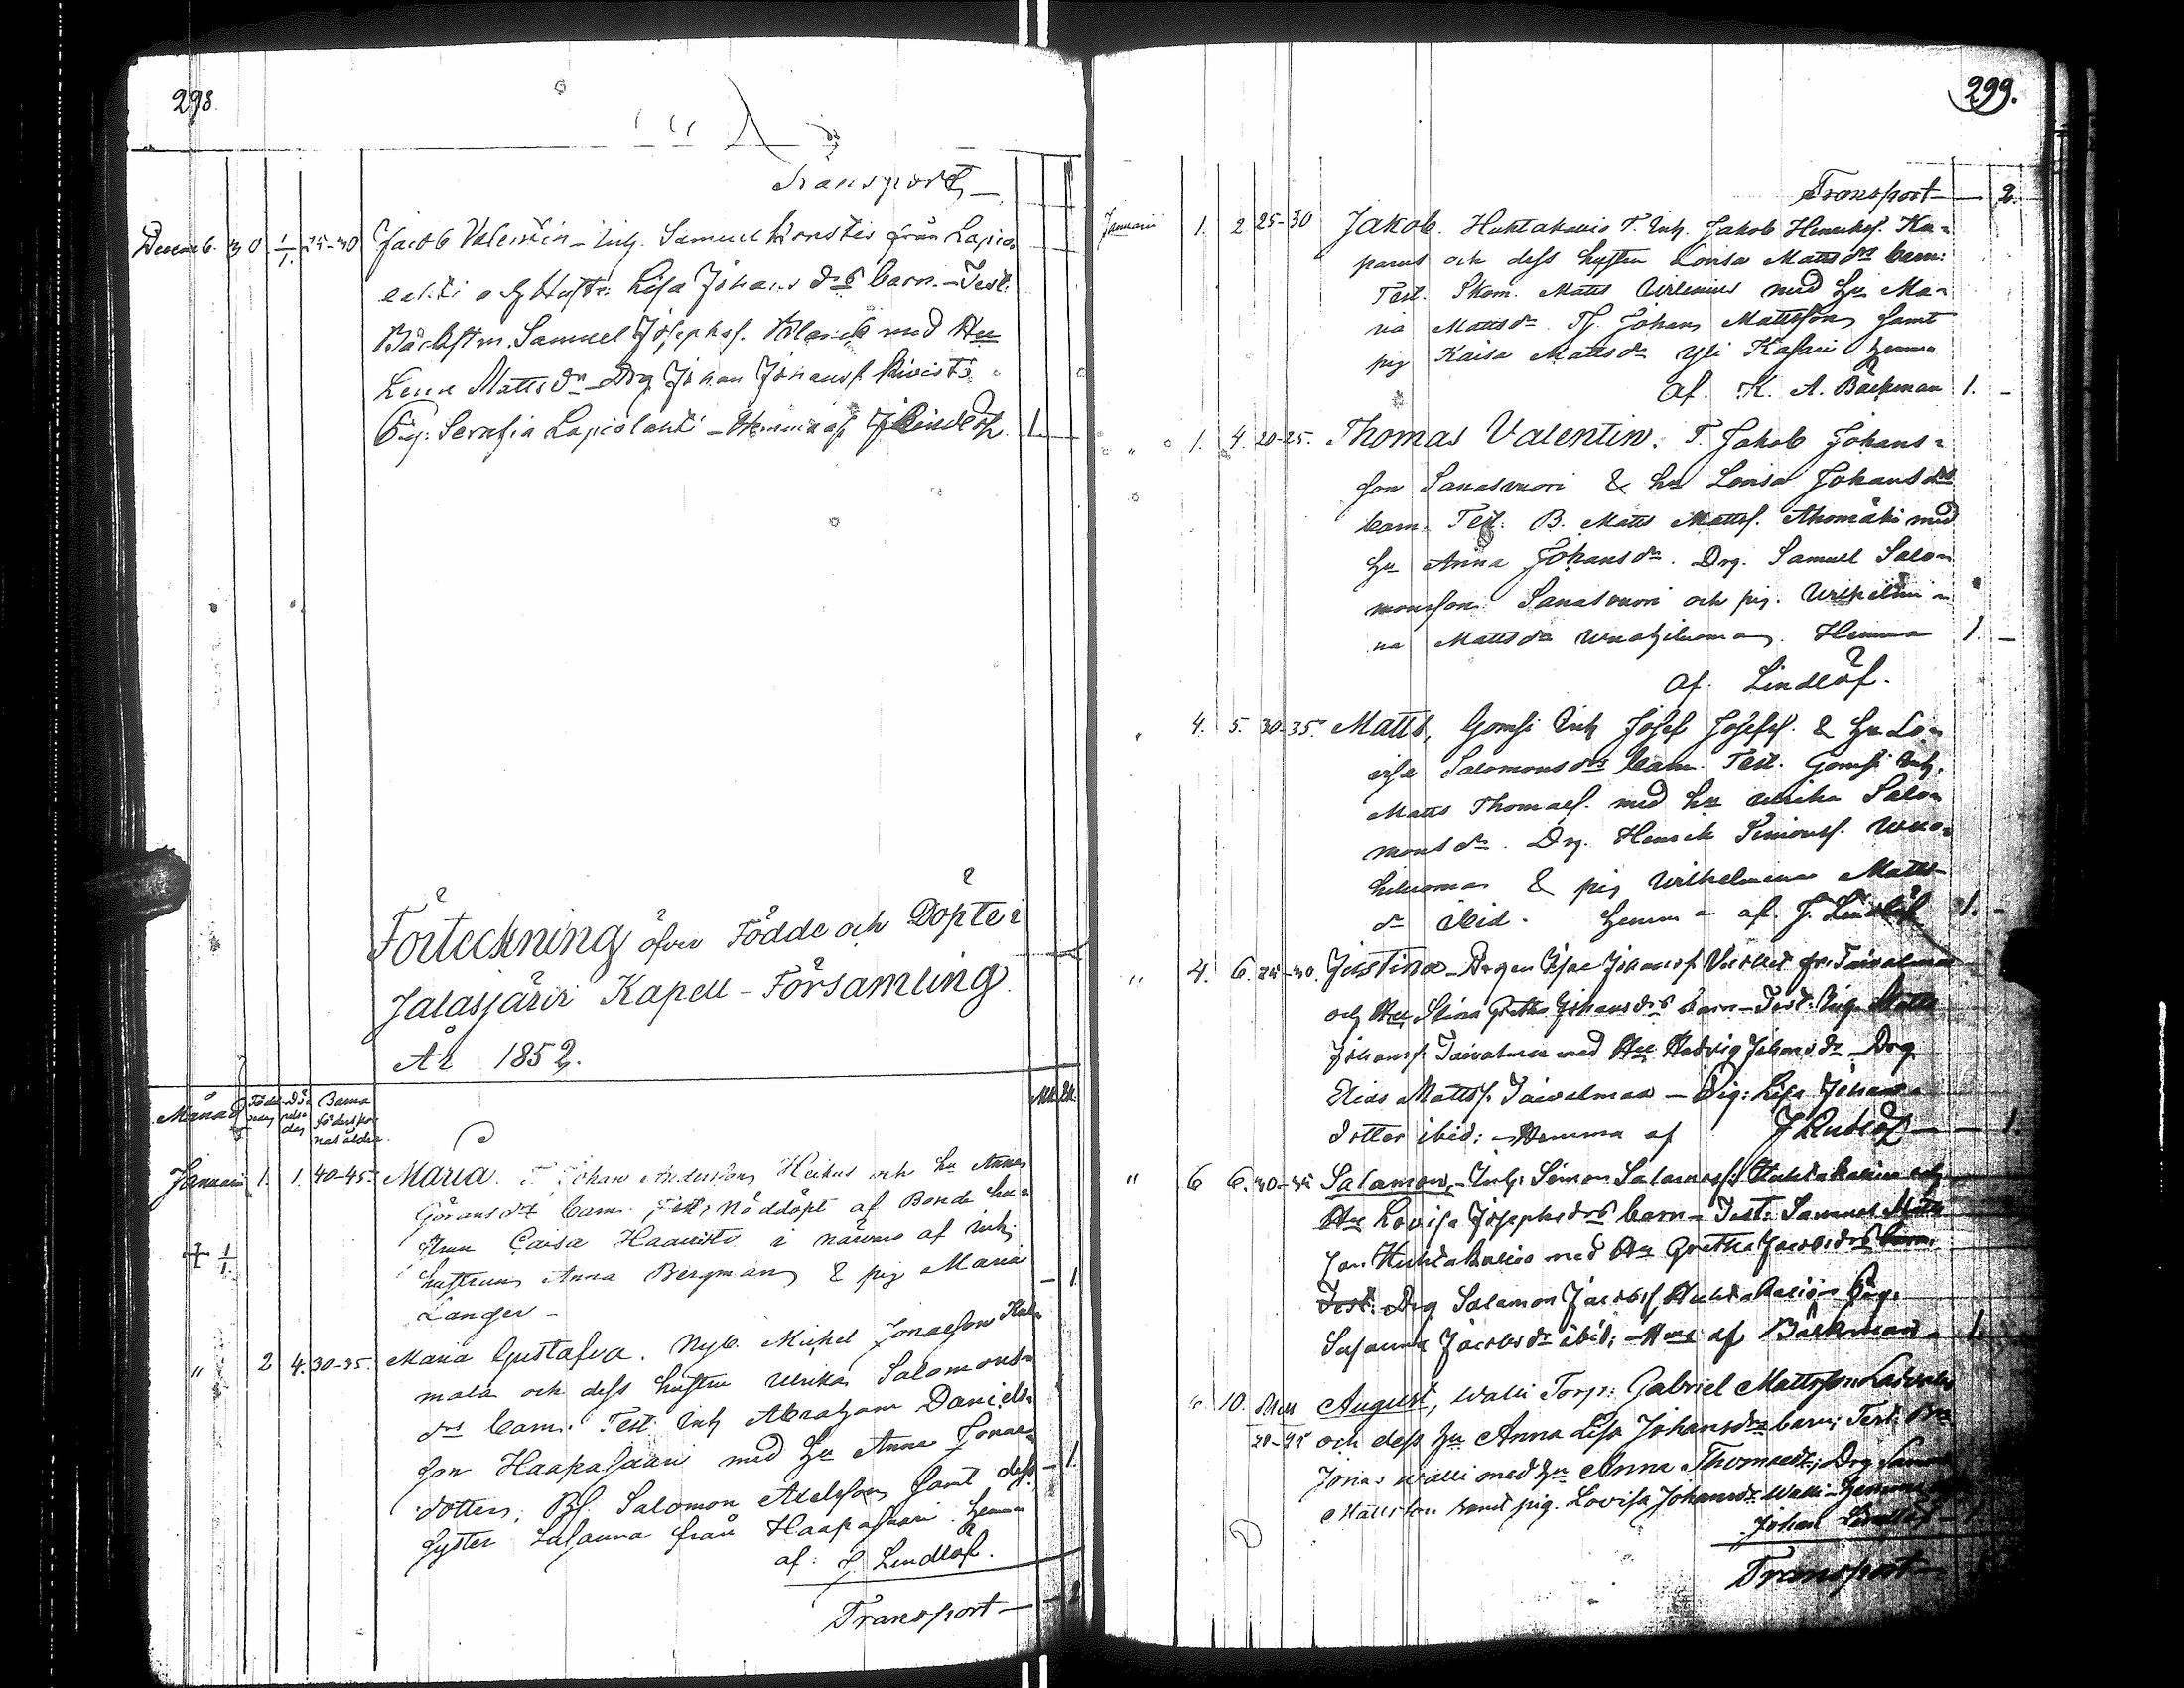 298
Transport —
Decemb. 30 1/1 25-30 Jacob Valentin — Inh. Samuel från Lapio
lahti och Hustr: Lisa Johans drs barn. — Test.
Samuel Josephss. med Hu
Lena Matts dr — Drg Johan Johanss. Kivistö
Pig: Serafia Lapiolahti — Hemma af J Lindlöf. 1.
Förteckning öfver Födde och Döpte i
Jalasjärvi Kapell-Församling
År 1852.
Månad Födelsedag Döpelsedag Barna föderskornas ålder
Januari 1. 1. 40-45. Maria. T. Johan Andersson Heikus och hu Anna
Görans drs barn. Test, Nöddöpt af Bonde hu-
strun Caisa Haavisto i närvaro af Inh.
+ 1/1 hustrun Anna Bergman & pig Maria — 1
Langer —
" 2 4. 30-35. Maria Gustafva. Nyb. Michel Jonasson
mala och dess hustru Ulrika Salomons-
drs barn. Test Inh Abraham Daniels-
son Haapasaari med hu Anna Jonae-
dotter, Bs. Salomon Axelsson samt dess — 1.
syster Susanna från Haapasaari. hemma
af: J. Lindlöf.
Transport —
299.
Transport — 2.
Januarii 1. 2 25-30 Jakob. Huhtakouio T. Inh. Jakob Henriks. Ka-
parus och dess hustru Lovisa Matts drs barn:
Test. Skom. Matts med hu Ma-
ria Matts dr. Johan Mattsson samt
pig Kaisa Matts dr Yli Kasari hemma
af. K. A. Backman 1. —
" 1. 4. 20-25. Thomas Valentin. T. Jakob Johans-
son Sanasvuori & hu Lovisa Johans drs
barn. Test: B. Matts Mattss. Ahomäki med
hu Anna Johans dr. Drg. Samuel Salo-
monsson Sanasvuori och pig. Wilhelmi-
na Matts dr. Hemma 1. —
af. Lindlöf.
4. 5. 30-35. Matts, Gomsi Inh Josef Josefss. & hu Lo-
visa Salomons drs barn. Test. Gomsi Inh.
Matts Thomass. med hu Ulrika Salo-
mons dr. Drg. Henrik Simonss. Wuo-
hiluoma & pig Wilhelmina Matts-
dr ibid. hemma af. J. Lindlöf 1. —
" 4. 6. 25-30. Justina — Drgen Isac Johanss. fr: Taivalmaa
och Hu Stina Greta Johans drs barn — Test: Inh. Matts
Johanss. Taivalmaa med Hu Hedvig Johans dr — Drg
Elias Mattss. Taivalmaa — Pig: Lisa Johans-
dotter ibid: — Hemma af J Lindlöf — 1.
" 6 6. 30-35 Salamon, — Inh: Simon Salamoss. Huhtakouio och
Hu Lovisa Josephs drs barn — Test: Samuel Matts
son Huhtakouio med Hu Gretha Jacobs drs barn.
Test: Drg Salamon Jacobss. Huhtakouio — Pig.
Susanna Jacobs dr ibid; — af Backman 1.
10. 20-25 August, Walli Torp: Gabriel Mattsson
och dess hu Anna Lisa Johansdrs barn; Test:
Jonas Walli med hu Anna Thomasdr; Drg Samuel
Mattsson samt pig. Lovisa Johansdr Walli — hemma
Johan Lindlöf —
Transport —